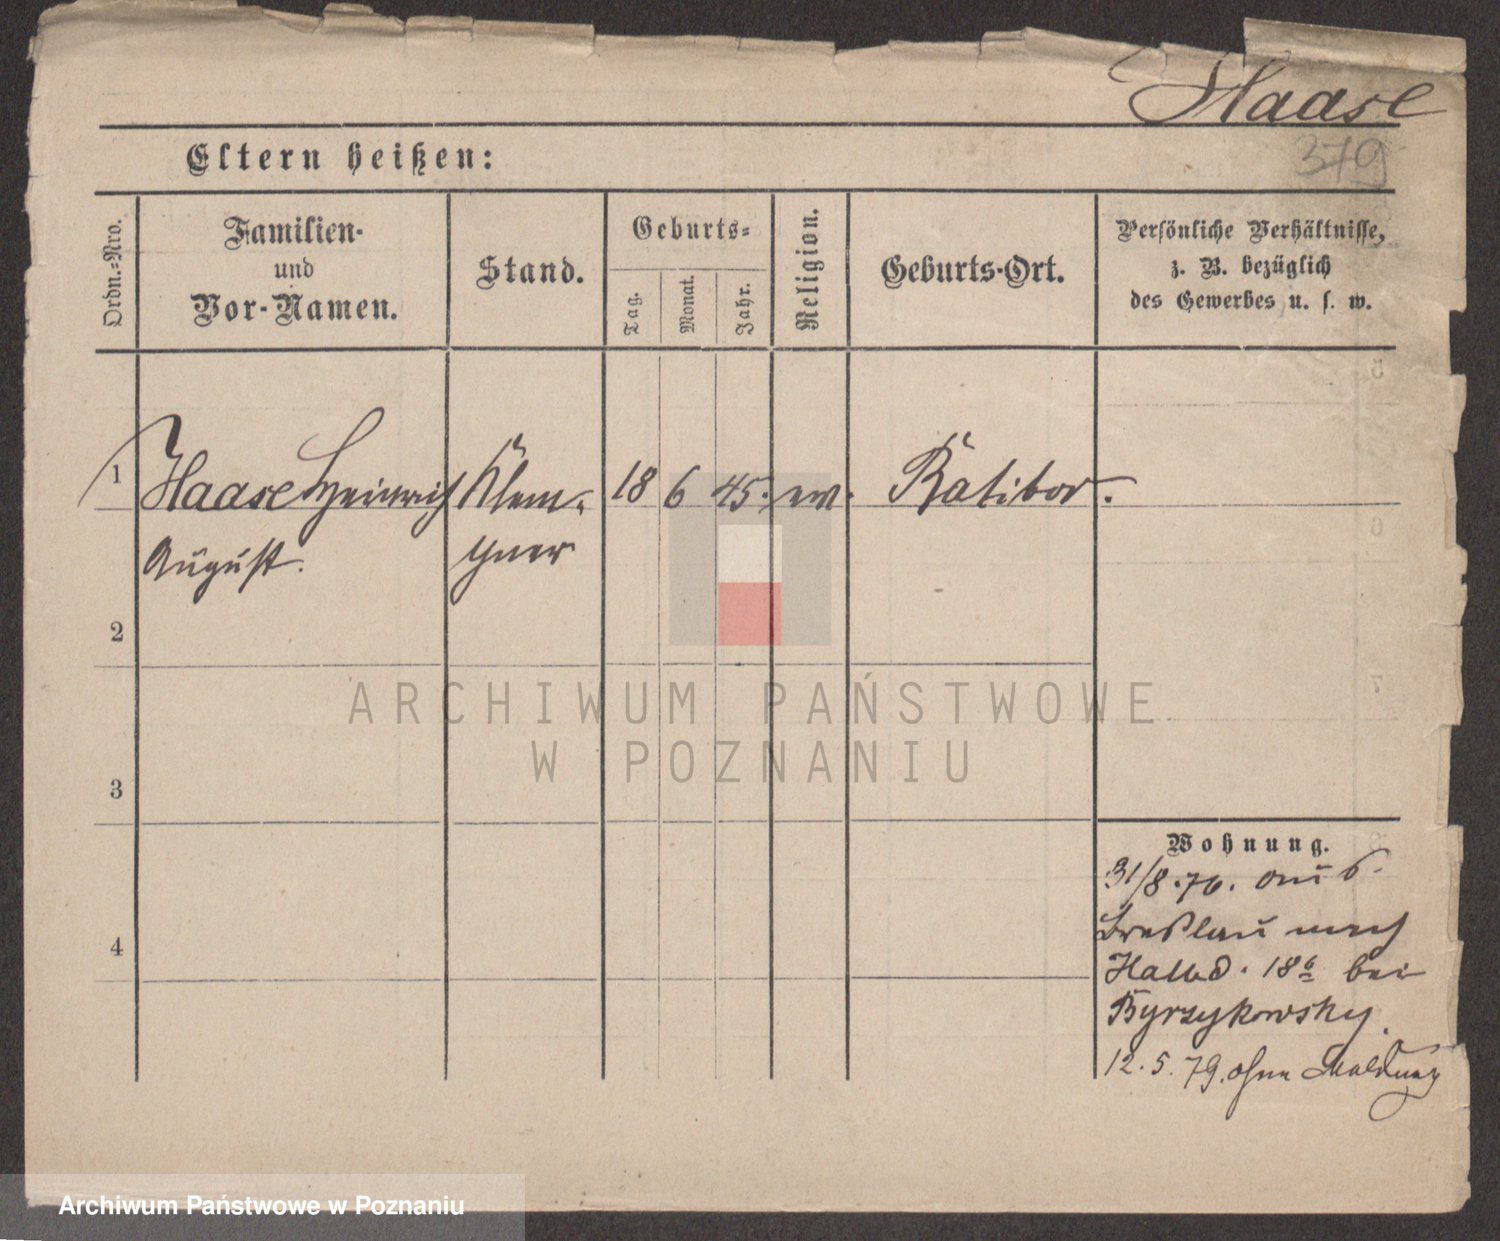 Haase
379
Eltern heißen:
Ordn.-Nro.
Familien-
und
Vor-Namen.
Stand.
Geburts-
Tag.
Monat.
Jahr.
Religion.
Geburts-Ort.
Persönliche Verhältnisse,
z. B. bezüglich
des Gewerbes u. s. w.
1
Haase Heinrich
August.
Klem-
pner
18
6
45.
ev.
Ratibor.
2
3
4
Wohnung.
31/8.76. aus
Breslau nach
Halbd. 18 bei
Byrzykowsky.
12.5.79. ohne Meldung
ARCHIWUM PAŃSTWOWE
W POZNANIU
Archiwum Państwowe w Poznaniu